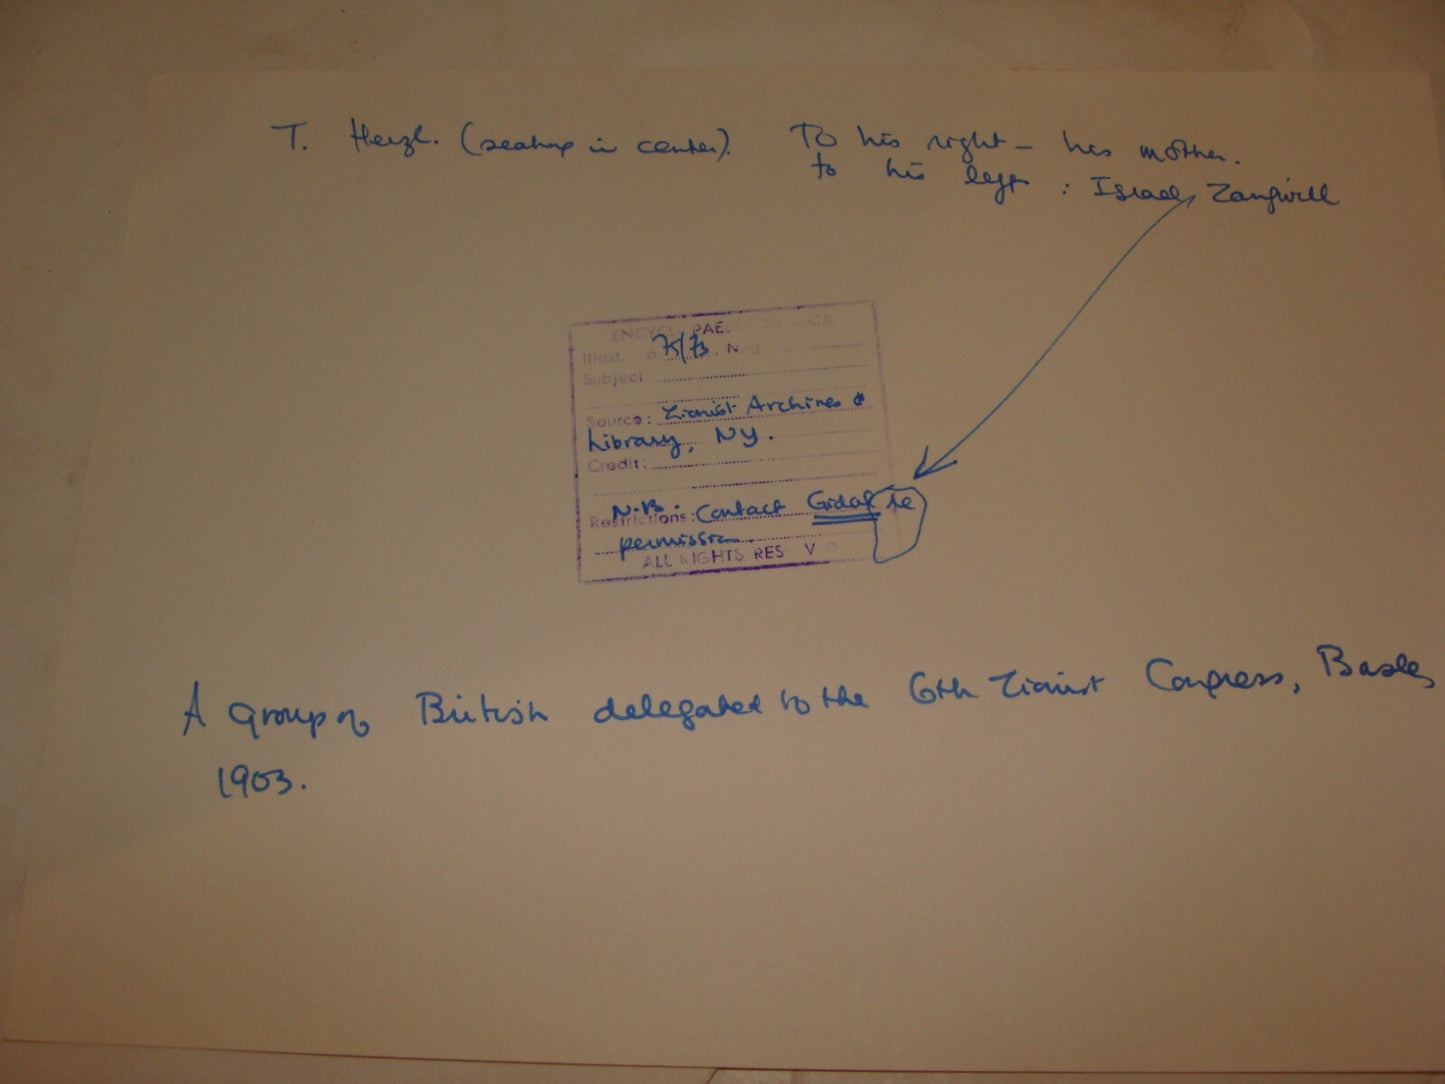 T. Herzl. (seating in center). To his right – his mother.
to his left : Israel Zangwill
ENCYC PAE. ICA
Illust. o 75/73. Neg
Subject:
Source: Zionist Archives &
Library, NY.
Credit:
N.B.
Restrictions: Contact Gidal re
permission.
ALL RIGHTS RES V
A group of British delegates to the 6th Zionist Congress, Basle,
1903.